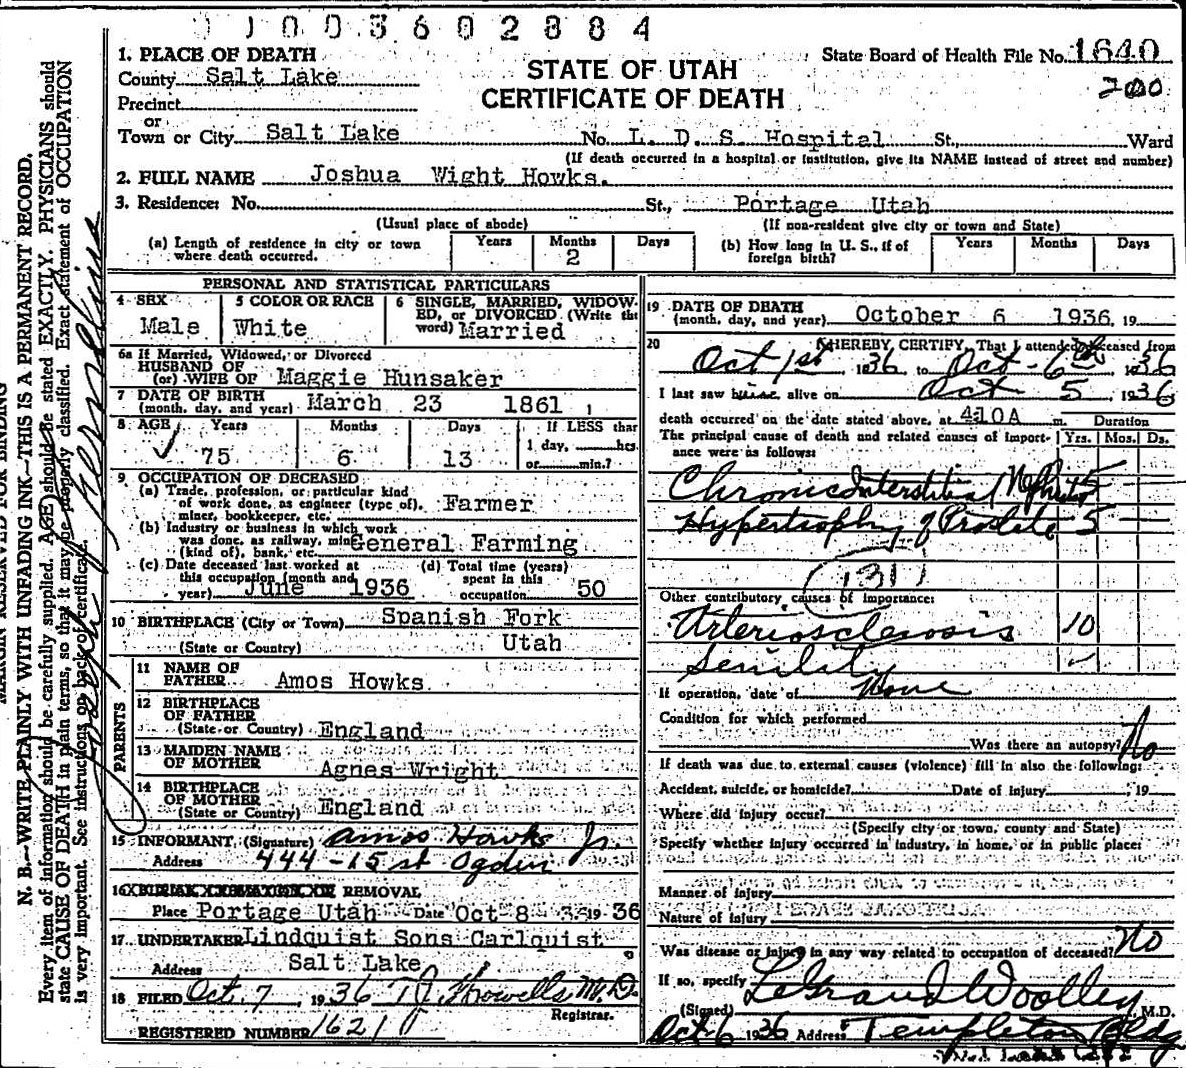 1003602884
1. PLACE OF DEATH
County Salt Lake
Precinct
or
Town or City Salt Lake No. L. D. S. Hospital St., Ward
(If death occurred in a hospital or institution, give its NAME instead of street and number)
STATE OF UTAH
CERTIFICATE OF DEATH
State Board of Health File No. 1640
200
2. FULL NAME Joshua Wight Howks.
3. Residence: No. St., Portage Utah
(Usual place of abode) (If non-resident give city or town and State)
(a) Length of residence in city or town where death occurred. Years Months 2 Days
(b) How long in U. S., if of foreign birth? Years Months Days
PERSONAL AND STATISTICAL PARTICULARS
4 SEX Male
5 COLOR OR RACE White
6 SINGLE, MARRIED, WIDOWED, or DIVORCED (Write the word) Married
6a If Married, Widowed, or Divorced
HUSBAND OF
(or) WIFE OF Maggie Hunsaker
7 DATE OF BIRTH
(month, day, and year) March 23 1861
8 AGE Years 75 Months 6 Days 13 If LESS than 1 day, hrs. or min.?
9 OCCUPATION OF DECEASED
(a) Trade, profession, or particular kind
of work done, as engineer (type of),
miner, bookkeeper, etc. Farmer
(b) Industry or business in which work
was done, as railway, min
(kind of), bank, etc. General Farming
(c) Date deceased last worked at
this occupation (month and
year) June 1936
(d) Total time (years)
spent in this
occupation 50
10 BIRTHPLACE (City or Town) Spanish Fork
(State or Country) Utah
PARENTS
11 NAME OF
FATHER Amos Howks
12 BIRTHPLACE
OF FATHER
(State or Country) England
13 MAIDEN NAME
OF MOTHER Agnes Wright
14 BIRTHPLACE
OF MOTHER
(State or Country) England
15 INFORMANT (Signature) Amos Howks Jr.
Address 444-15 st Ogden
16 REMOVAL
Place Portage Utah Date Oct 8 1936
17 UNDERTAKER Lindquist Sons Carlquist
Address Salt Lake
18 FILED Oct. 7, 1936 T J Howells M.D.
Registrar.
REGISTERED NUMBER 1621
19 DATE OF DEATH
(month, day, and year) October 6 1936, 19
20 I HEREBY CERTIFY, That I attended deceased from
Oct 1st 1936 to Oct-6th 1936
I last saw alive on Oct 5 1936
death occurred on the date stated above, at 410A m. Duration
The principal cause of death and related causes of importance were as follows: Yrs. Mos. Ds.
Chronic Interstitial Nephritis 5
Hypertrophy of Prostate 5
131
Other contributory causes of importance:
Arteriosclerosis 10
Senility
If operation, date of None
Condition for which performed
Was there an autopsy? No
If death was due to external causes (violence) fill in also the following:
Accident, suicide, or homicide? Date of injury 19
Where did injury occur?
(Specify city or town, county and State)
Specify whether injury occurred in industry, in home, or in public place:
Manner of injury
Nature of injury
Was disease or injury in any way related to occupation of deceased? No
If so, specify
(Signed) LeGrand Woolley M.D.
Oct 6 1936 Address Templeton Bldg
N. B.—WRITE PLAINLY WITH UNFADING INK—THIS IS A PERMANENT RECORD.
Every item of information should be carefully supplied. AGE should be stated EXACTLY. PHYSICIANS should
state CAUSE OF DEATH in plain terms, so that it may be properly classified. Exact statement of OCCUPATION
is very important. See instructions on back of certificate.